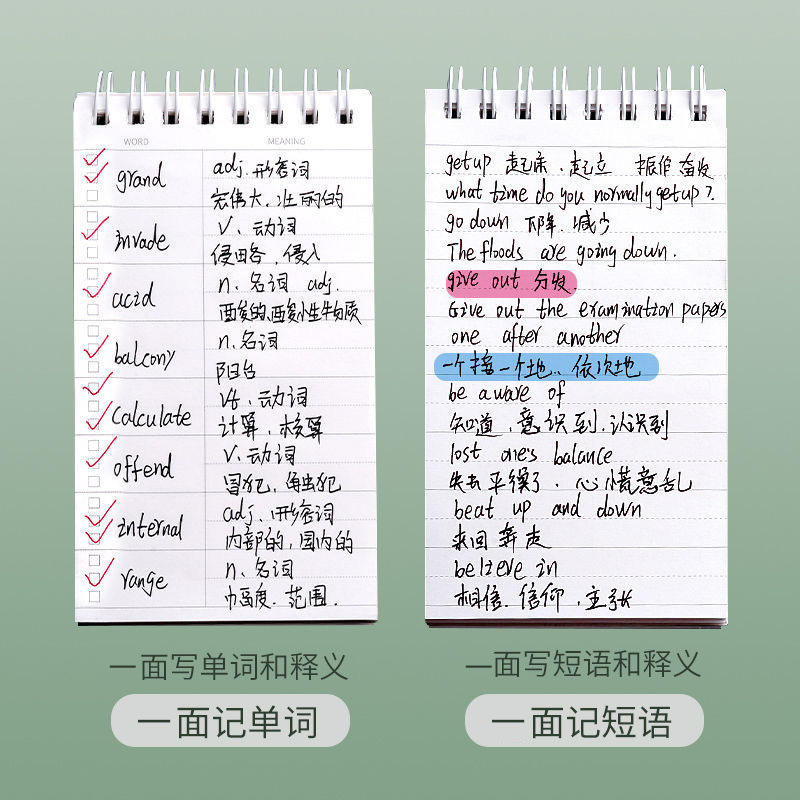 WORD MEANING
grand adj. 形容词
宏伟大、壮丽的
invade v. 动词
侵略, 侵入
acid n. 名词 adj.
酸的、酸性物质
balcony n. 名词
阳台
calculate vt. 动词
计算, 核算
offend v. 动词
冒犯, 触犯
internal adj. 形容词
内部的, 国内的
range n. 名词
幅度. 范围.
一面写单词和释义
一面记单词
get up 起床、起立 振作奋发
what time do you normally get up?
go down 下降. 减少
The floods are going down.
give out 分发.
Give out the examination papers
one after another
一个接一个地、依次地
be aware of
知道, 意识到. 认识到
lost one's balance
失去平衡了、心慌意乱
beat up and down
来回奔走
believe in
相信. 信仰, 主张
一面写短语和释义
一面记短语